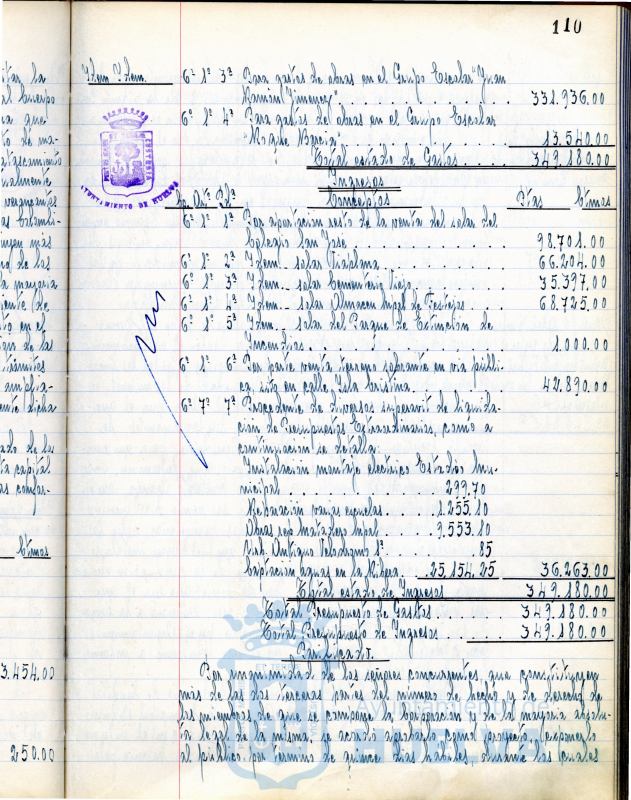 110
Idem Idem. 6º 1º 3º Para gastos de obras en el Grupo Escolar "Juan
Ramón Jimenez" . . . 331.936.00
6º 1º 4º Para gastos de obras en el Grupo Escolar
"Roque Barcia" . . . 13.540.00
Total estado de Gastos . . . 349.180.00
Ingresos
Conceptos Ptas Ctmos
6º 1º 1º Por aportación resto de la venta del solar del
Colegio San Jose . . . 98.701.00
6º 1º 2º Idem.. solar . . . 66.204.00
6º 1º 3º Idem.. solar Cementerio Viejo . . . 35.397.00
6º 1º 4º Idem.. solar Almacen Mpal de Festejos . . . 68.725.00
6º 1º 5º Idem.. solar del Parque de Extinción de
Incendios . . . 1.000.00
6º 1º 6º Por parte venta terreno sobrante en via públi-
ca, sito en calle Isla Cristina . . . 42.890.00
6º 7º 7º Procedente de diversos superavit de liquida-
ción de Presupuestos Extraordinarios, como a
continuación se detalla:
Instalación montaje electrico Estadio Mu-
nicipal . . . 299,70
Reparación varias escuelas . . . 1.255,10
Obras rep Matadero Mpal . . . 9.553.10
Urb. Antiguo Velodromo 1º . . . ,85
Captación aguas en la Ribera . . . 25.154,25 36.263.00
Total estado de Ingresos 349.180.00
Total Presupuesto de Gastos . . . 349.180.00
Total Presupuesto de Ingresos . . . 349.180.00
Por unanimidad de los señores concurrentes que constituyen
más de las dos terceras partes del número de hecho y de derecho de
los miembros de que se compone la Corporación y de la mayoria absolu-
ta legal de la misma, se acordó aprobarlo como proyecto, exponerlo
al público por termino de quince dias habiles, durante los cuales
AYUNTAMIENTO DE HUELVA
Ayuntamiento de
HUELVA
Ctmos
3.454.00
250.00